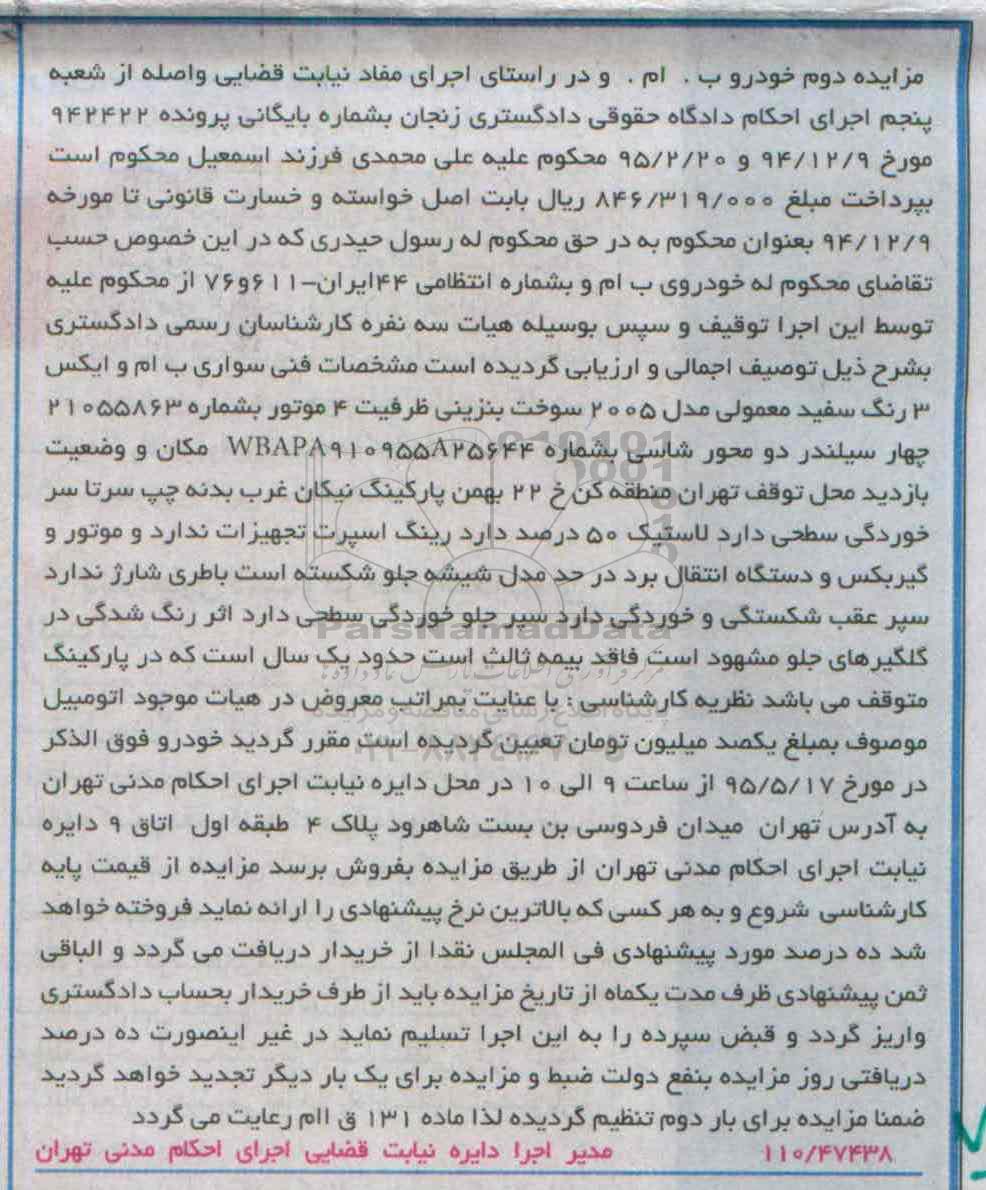 مزایده دوم خودرو ب . ام . و در راستای اجرای مفاد نیابت قضایی واصله از شعبه
پنجم اجرای احکام دادگاه حقوقی دادگستری زنجان بشماره بایگانی پرونده ۹۴۲۴۲۲
مورخ ۹۴/۱۲/۹ و ۹۵/۲/۲۰ محکوم علیه علی محمدی فرزند اسمعیل محکوم است
بپرداخت مبلغ ۸۴۶/۳۱۹/۰۰۰ ریال بابت اصل خواسته و خسارت قانونی تا مورخه
۹۴/۱۲/۹ بعنوان محکوم به در حق محکوم له رسول حیدری که در این خصوص حسب
تقاضای محکوم له خودروی ب ام و بشماره انتظامی ۴۴ایران-۶۱۱و۷۶ از محکوم علیه
توسط این اجرا توقیف و سپس بوسیله هیات سه نفره کارشناسان رسمی دادگستری
بشرح ذیل توصیف اجمالی و ارزیابی گردیده است مشخصات فنی سواری ب ام و ایکس
۳ رنگ سفید معمولی مدل ۲۰۰۵ سوخت بنزینی ظرفیت ۴ موتور بشماره ۲۱۰۵۵۸۶۳
چهار سیلندر دو محور شاسی بشماره WBAPA۹۱۰۹۵۵A۲۵۶۴۴ مکان و وضعیت
بازدید محل توقف تهران منطقه کن خ ۲۲ بهمن پارکینگ نیکان غرب بدنه چپ سرتا سر
خوردگی سطحی دارد لاستیک ۵۰ درصد دارد رینگ اسپرت تجهیزات ندارد و موتور و
گیربکس و دستگاه انتقال برد در حد مدل شیشه جلو شکسته است باطری شارژ ندارد
سپر عقب شکستگی و خوردگی دارد سپر جلو خوردگی سطحی دارد اثر رنگ شدگی در
ParsNamadData
گلگیرهای جلو مشهود است فاقد بیمه ثالث است حدود یک سال است که در پارکینگ
متوقف می باشد نظریه کارشناسی : با عنایت بمراتب معروض در هیات موجود اتومبیل
موصوف بمبلغ یکصد میلیون تومان تعیین گردیده است مقرر گردید خودرو فوق الذکر
در مورخ ۹۵/۵/۱۷ از ساعت ۹ الی ۱۰ در محل دایره نیابت اجرای احکام مدنی تهران
به آدرس تهران میدان فردوسی بن بست شاهرود پلاک ۴ طبقه اول اتاق ۹ دایره
نیابت اجرای احکام مدنی تهران از طریق مزایده بفروش برسد مزایده از قیمت پایه
کارشناسی شروع و به هر کسی که بالاترین نرخ پیشنهادی را ارائه نماید فروخته خواهد
شد ده درصد مورد پیشنهادی فی المجلس نقدا از خریدار دریافت می گردد و الباقی
ثمن پیشنهادی ظرف مدت یکماه از تاریخ مزایده باید از طرف خریدار بحساب دادگستری
واریز گردد و قبض سپرده را به این اجرا تسلیم نماید در غیر اینصورت ده درصد
دریافتی روز مزایده بنفع دولت ضبط و مزایده برای یک بار دیگر تجدید خواهد گردید
ضمنا مزایده برای بار دوم تنظیم گردیده لذا ماده ۱۳۱ ق اام رعایت می گردد
۱۱۰/۴۷۴۳۸ مدیر اجرا دایره نیابت قضایی اجرای احکام مدنی تهران